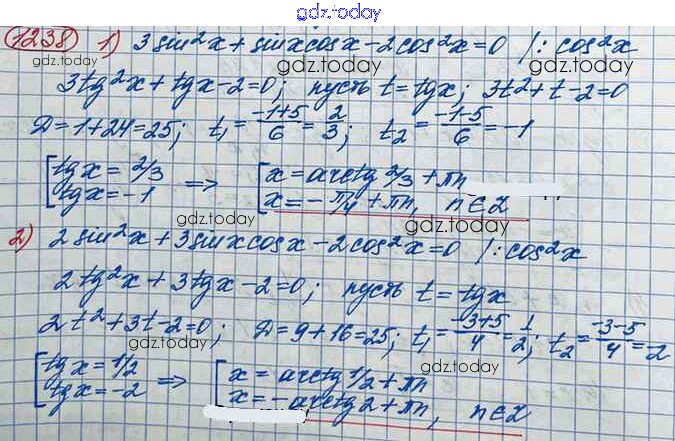 gdz.today
1238 1) 3 sin²x + sinxcosx - 2cos²x = 0 /: cos²x
gdz.today gdz.today
3tg²x + tgx - 2 = 0; пусть t = tgx; 3t² + t - 2 = 0
D = 1 + 24 = 25; t₁ = (-1+5)/6 = 2/3; t₂ = (-1-5)/6 = -1
gdz.today gdz.today
[tgx = 2/3 => [x = arctg 2/3 + πn
[tgx = -1 [x = -π/4 + πn, n∈Z
gdz.today gdz.today
2) 2 sin²x + 3 sinxcosx - 2cos²x = 0 /: cos²x
2tg²x + 3tgx - 2 = 0; пусть t = tgx
gdz.today
2t² + 3t - 2 = 0; D = 9 + 16 = 25; t₁ = (-3+5)/4 = 1/2; t₂ = (-3-5)/4 = -2
gdz.today gdz.today
[tgx = 1/2 => [x = arctg 1/2 + πn
[tgx = -2 [x = -arctg2 + πn, n∈Z